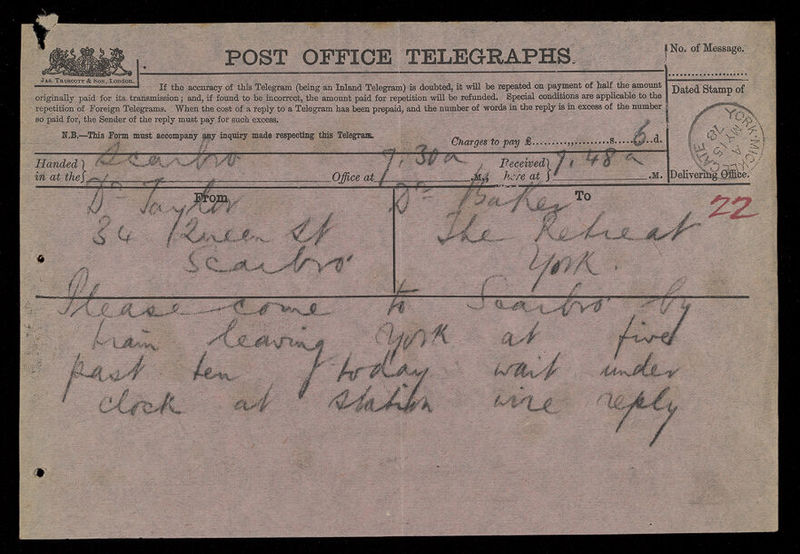 POST OFFICE TELEGRAPHS.
No. of Message.
JAS. TRUSCOTT & SON, London.
If the accuracy of this Telegram (being an Inland Telegram) is doubted, it will be repeated on payment of half the amount
originally paid for its transmission; and, if found to be incorrect, the amount paid for repetition will be refunded. Special conditions are applicable to the
repetition of Foreign Telegrams. When the cost of a reply to a Telegram has been prepaid, and the number of words in the reply is in excess of the number
so paid for, the Sender of the reply must pay for such excess.
Dated Stamp of
YORK-MICKLEGATE
A
MY 15
78
N.B.—This Form must accompany any inquiry made respecting this Telegram.
Charges to pay £ s. 6 d.
Handed in at the Scarbro Office at 7.30 a .M., Received here at 7.48 a .M.
Delivering Office.
From
Dr Taylor
34 Queen St
Scarbro
To
Dr Baker
The Retreat
York.
22
Please come to Scarbro by
train leaving York at five
past ten today wait under
clock at station wire reply